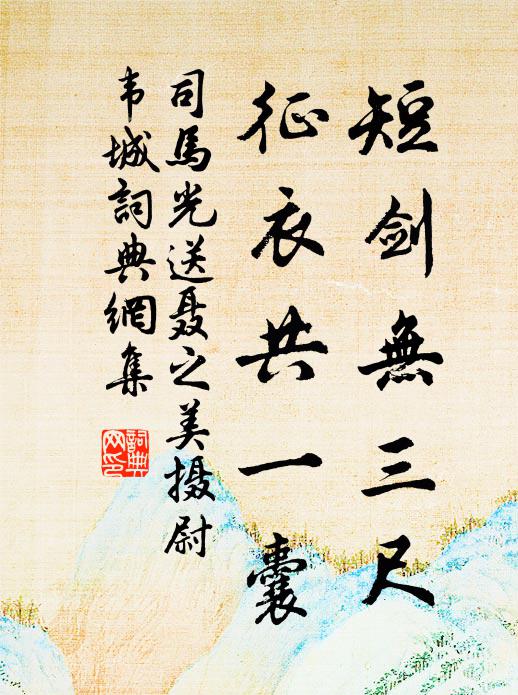 短剑無三尺
征衣共一囊
司馬光送聂之美摄尉
韦城詞典網集
詞典
网印